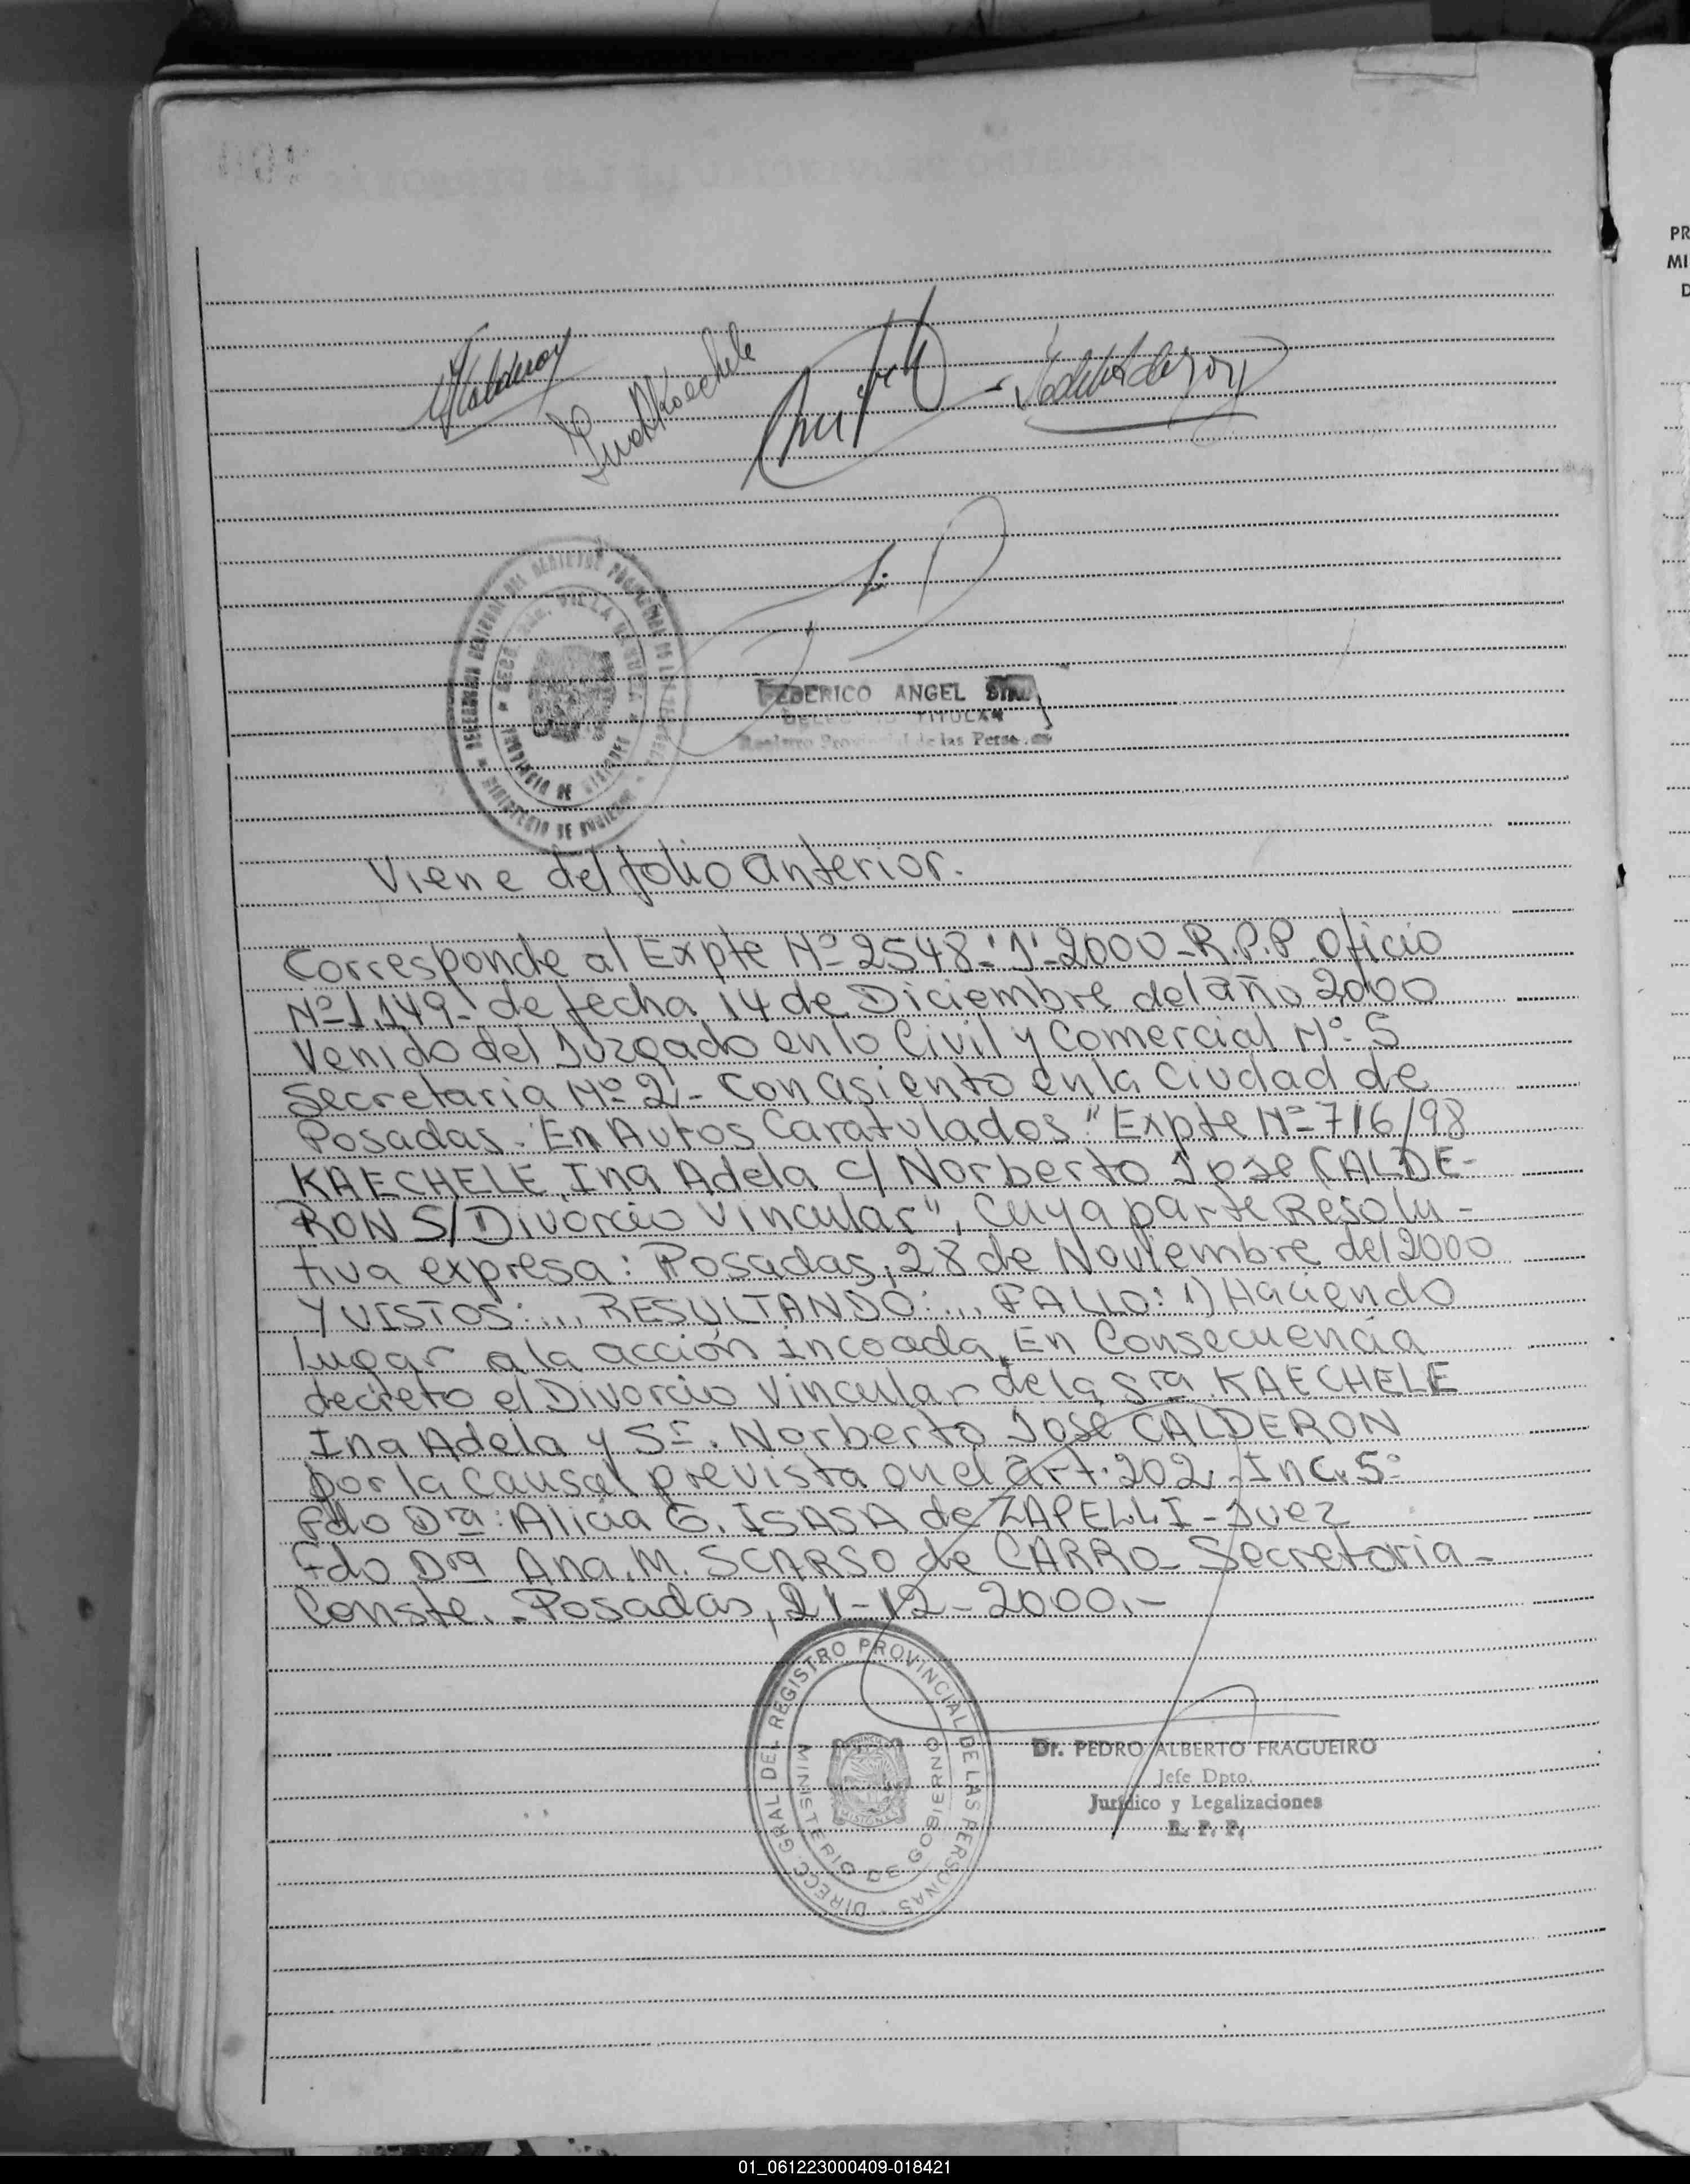 Ina A Kaechele
FEDERICO ANGEL
TITULAR
Registro Provincial de las Personas
VILLA
PROVINCIA DE MISIONES
MINISTERIO DE GOBIERNO
Viene del folio anterior.
Corresponde al Expte Nº 2548-'J'-2000-R.P.P. Oficio
Nº 1.149- de fecha 14 de Diciembre del año 2000
Venido del Juzgado en lo Civil y Comercial Nº 5
Secretaria Nº 2 - Con asiento en la Ciudad de
Posadas. En Autos Caratulados "Expte Nº 716/98
KAECHELE, Ina Adela c/ Norberto Jose CALDE-
RON S/Divorcio Vincular", Cuya parte Resolu-
tiva expresa: Posadas, 28 de Noviembre del 2000
Y VISTOS:... RESULTANDO:... FALLO: 1) Haciendo
Lugar a la acción incoada, En Consecuencia
decreto el Divorcio Vincular de la Sra KAECHELE
Ina Adela y Sr. Norberto José CALDERON
por la causal prevista en el art. 202.- Inc. 5º
Fdo Dra: Alicia G. ISASA de ZAPELLI - Juez
Fdo Dra Ana. M. SCARSO de CARRO - Secretaria -
Conste. - Posadas, 21-12-2000.-
DIRECC. GRAL DEL REGISTRO PROVINCIAL DE LAS PERSONAS
MINISTERIO DE GOBIERNO
MISIONES
Dr. PEDRO ALBERTO FRAGUEIRO
Jefe Dpto.
Jurídico y Legalizaciones
R. P. P.
PR
MI
D
01_061223000409-018421